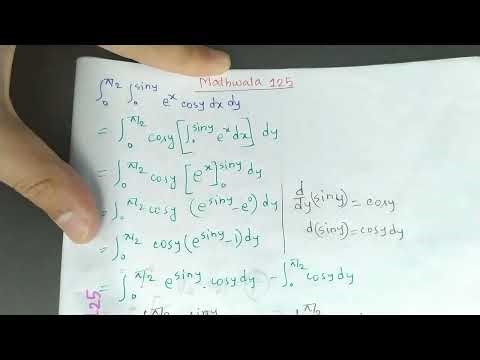 Mathwala 125
∫₀^π/2 ∫₀^siny e^x cosy dx dy
= ∫₀^π/2 cosy [∫₀^siny e^x dx] dy
= ∫₀^π/2 cosy [e^x]₀^siny dy
= ∫₀^π/2 cosy (e^siny - e^0) dy
= ∫₀^π/2 cosy (e^siny - 1) dy
= ∫₀^π/2 e^siny . cosy dy - ∫₀^π/2 cosy dy
d/dy (siny) = cosy
d(siny) = cosy dy
125